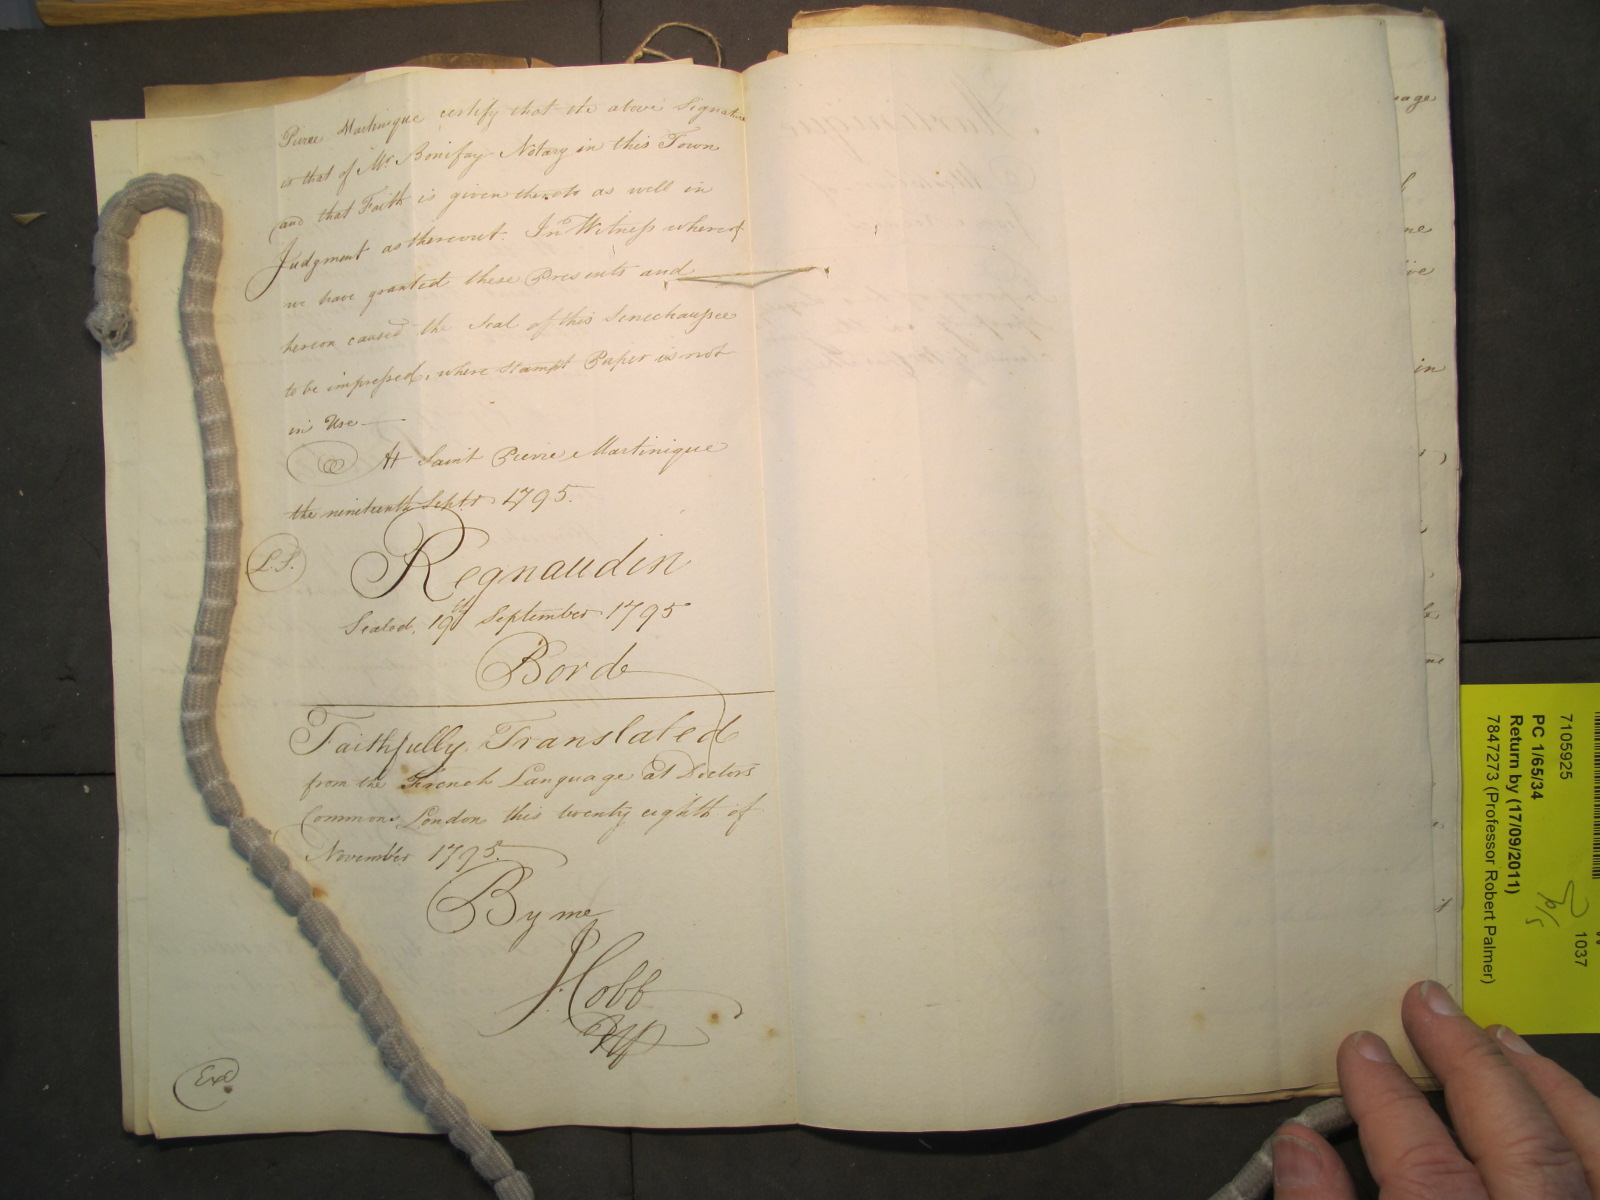 Pierre Martinique certify that the above Signature
is that of Mr. Bonifay Notary in this Town
and that Faith is given thereto as well in
Judgment as thereout. In Witness whereof
we have granted these Presents and
hereon caused the Seal of this Senechaussee
to be impressed, where Stampt Paper is not
in Use
At Saint Pierre Martinique
the nineteenth Septr. 1795.
L.S.
Regnaudin
Sealed, 19th September 1795
Borde
Faithfully Translated
from the French Language at Doctors
Commons, London this twenty eighth of
November 1795.
Byrne
Exd
in
7105925
PC 1/65/34
Return by (17/09/2011)
7847273 (Professor Robert Palmer)
1037